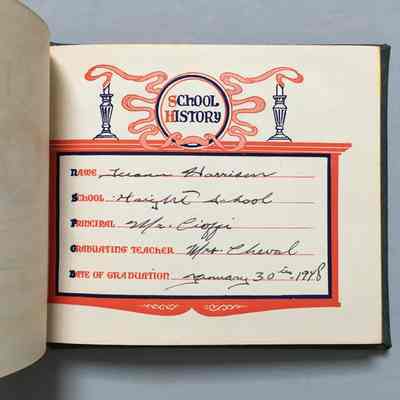 SCHOOL
HISTORY
NAME Harrison
SCHOOL Haight School
PRINCIPAL Mr. Cioffi
GRADUATING TEACHER Mrs. Cheval
DATE OF GRADUATION January 30th, 1948